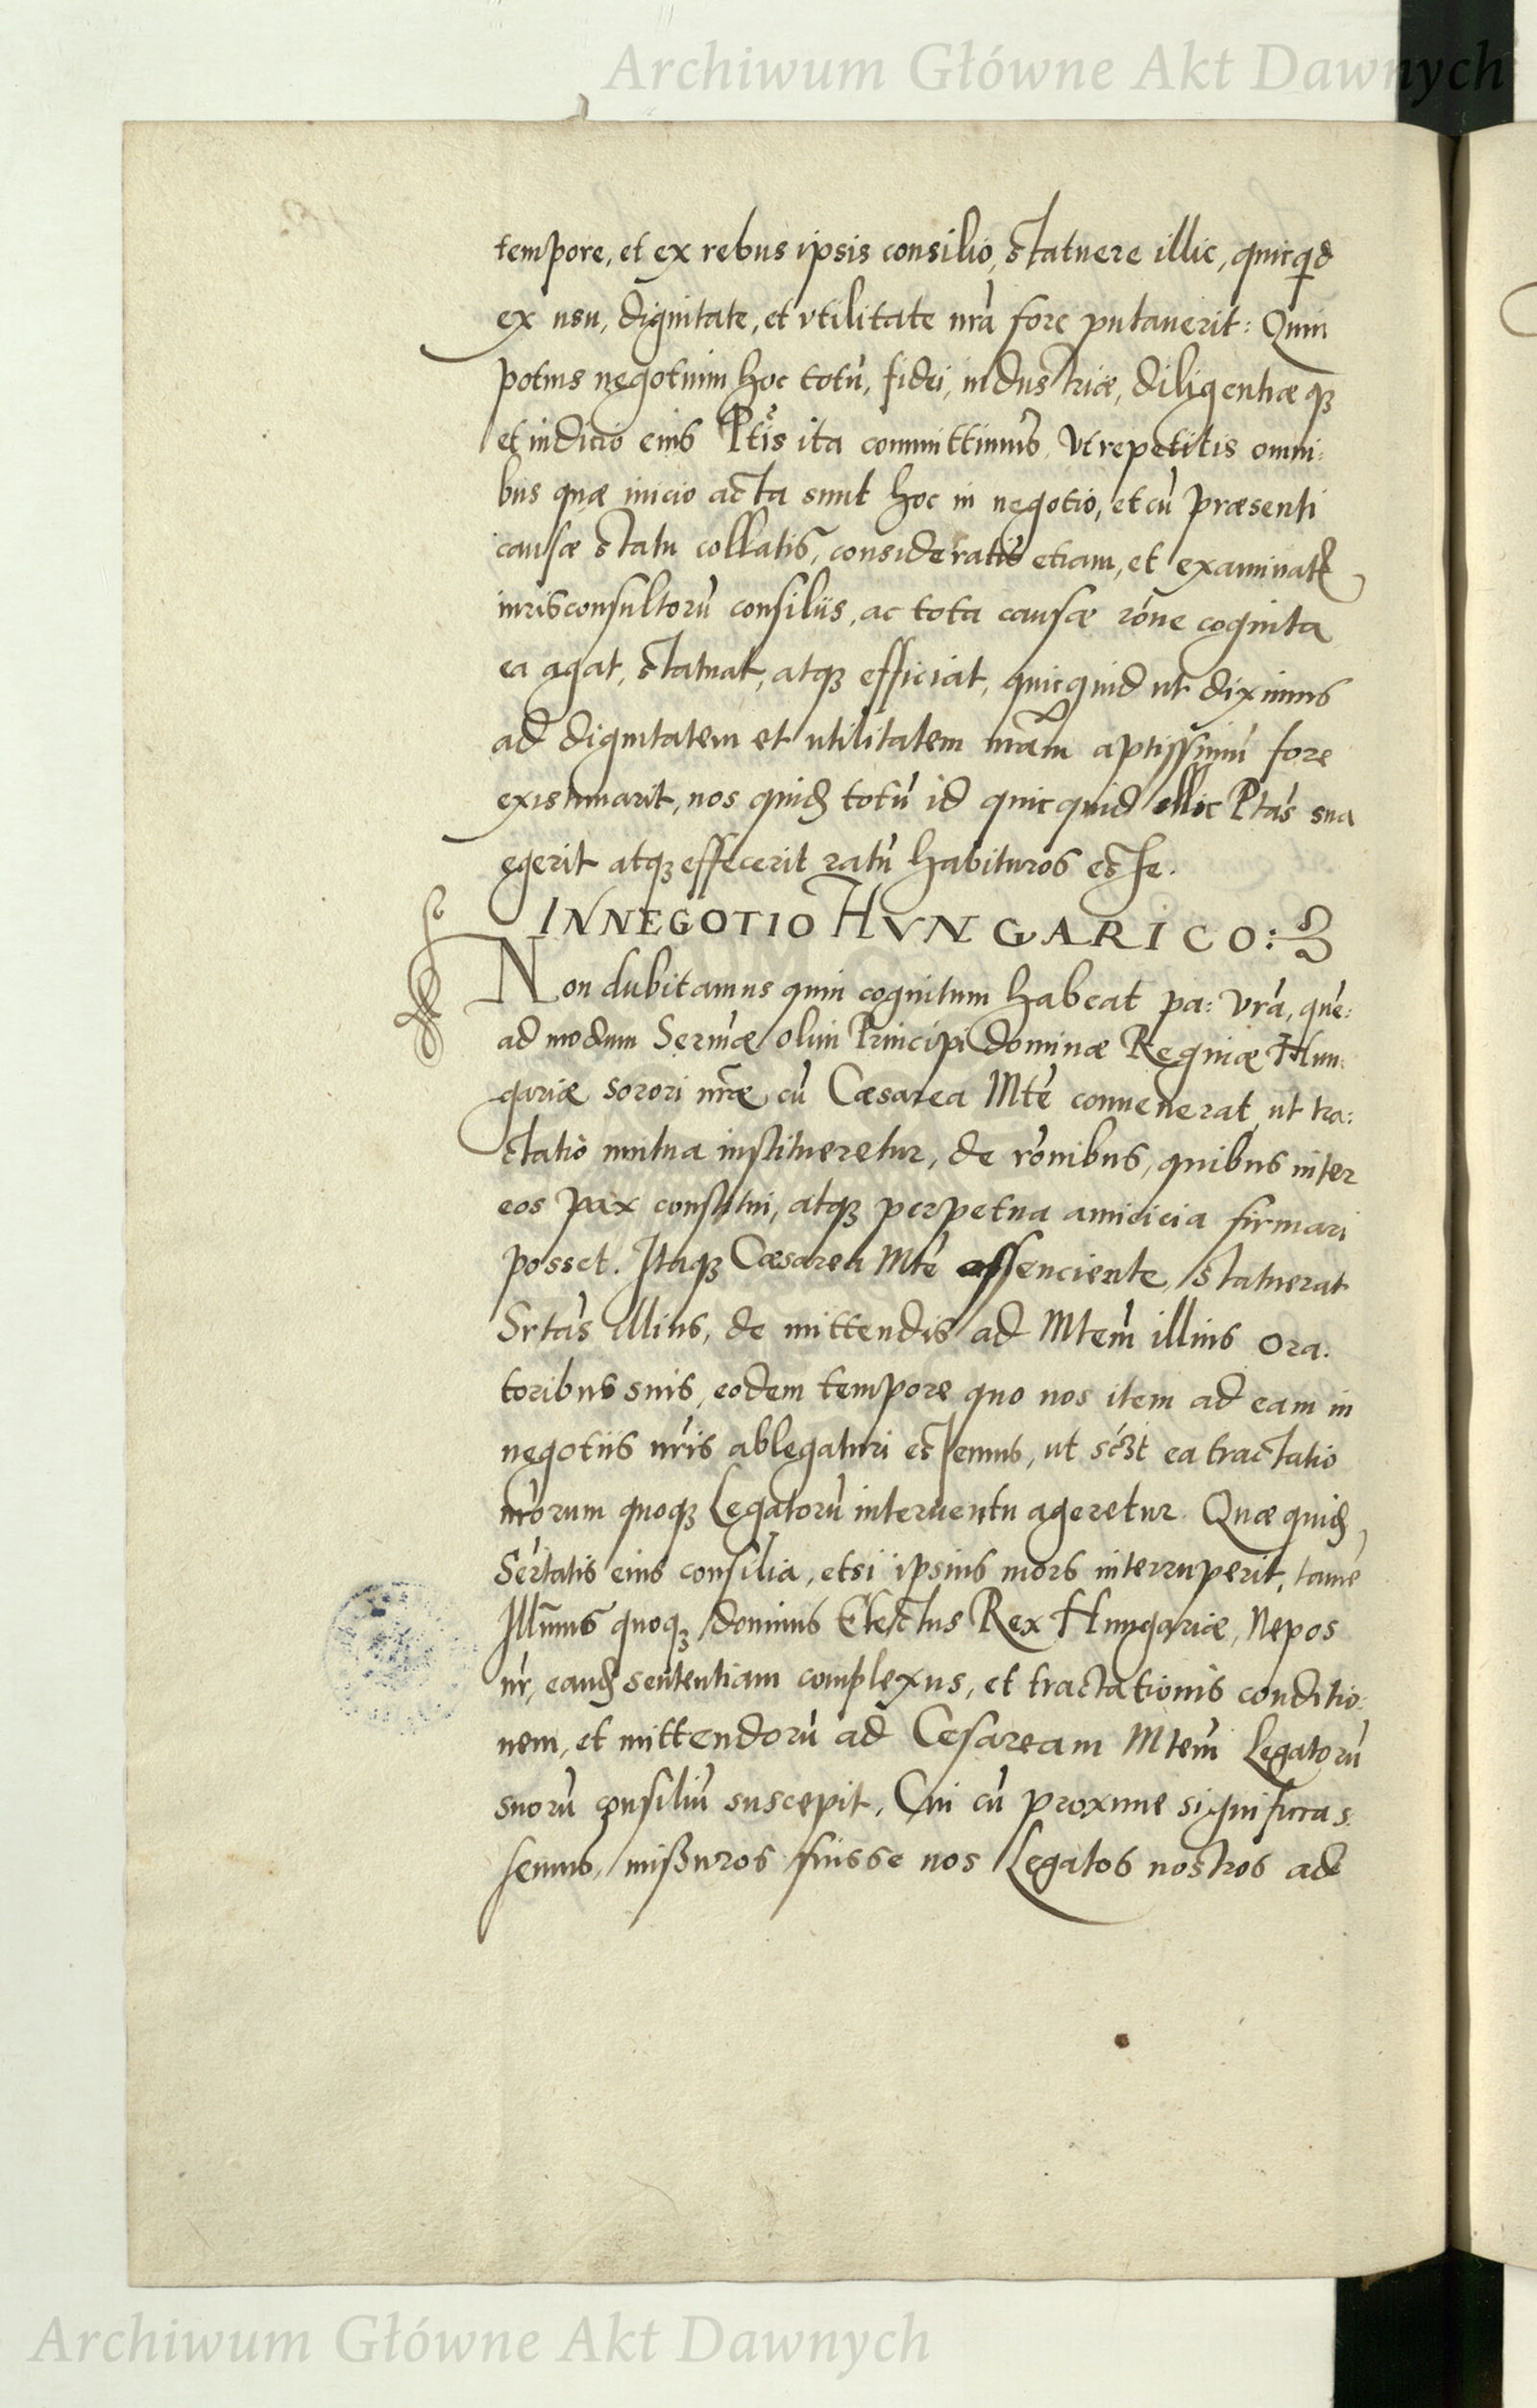 Archiwum Główne Akt Dawnych
tempore, et ex rebus ipsis consilio, statuere illic, quicqd
ex usu, dignitate, et vtilitate nrã fore putauerit: Quin
potius negotium hoc totũ, fidei, industriæ, diligentiæ qз
et iudicio eius Ptis ita committimus, Vt repetitis omni:
bus quæ inicio acta sunt hoc in negotio, et cũ præsenti
causæ statu collatis, consideratis etiam, et examinat
iurisconsultorũ consiliis, ac tota causæ rõne cognita
ea agat, statuat, atqз efficiat, quicquid ut diximus
ad dignitatem et utilitatem nrãm aptissimũ fore
existimarit, nos quid totũ id quicquid illic Ptas sua
egerit atqз effecerit ratũ habituros esse.
IN NEGOTIO HVNGARICO:
Non dubitamus quin cognitum habeat pa: vrã, quẽ:
ad modum Sermæ olim Principi dominæ Reginæ Hun:
gariæ sorori nrãe cũ Cæsarea Mtẽ conuenerat ut tra:
ctatio mutua institueretur, de rõnibus, quibus inter
eos pax constitui, atqз perpetua amicicia firmari
posset. Itaqз Cæsarea Mtẽ assenciente, statuerat
Srtas illius, de mittendis ad Mtem illius Ora:
toribus suis, eodem tempore quo nos item ad eam in
negotiis nris ablegaturi essemus, ut scзt ea tractatio
nrorum quoqз Legatorũ interuentu ageretur. Quæ quid
Sertatis eius consilia, etsi ipsius mors interruperit, tamẽ
Illmus quoqз dominus Electus Rex Hungariæ, Nepos
nr, eand sententiam complexus, et tractationis conditio:
nem, et mittendorũ ad Cesaream Mtem Legatorũ
suorũ consiliũ suscepit, Cui cũ proxime significas:
semus, mißuros fuisse nos Legatos nostros ad
Archiwum Główne Akt Dawnych